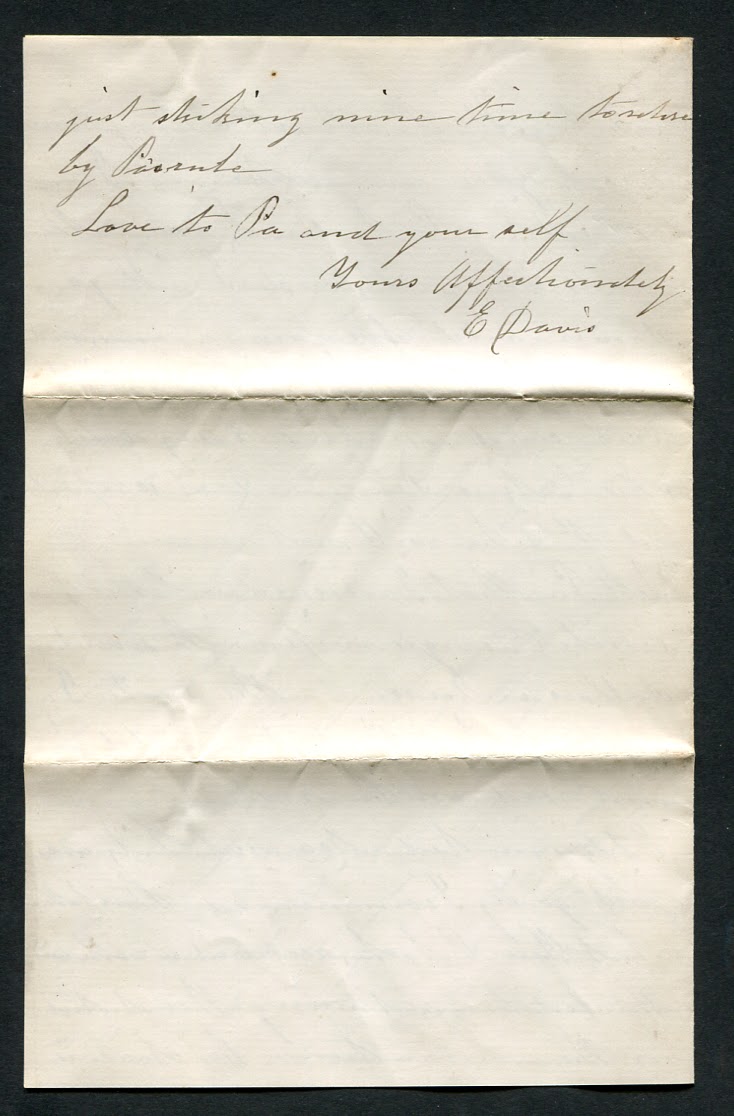 just striking nine time to retire
by
Love to Pa and your self
Yours Affectionately
E Davis